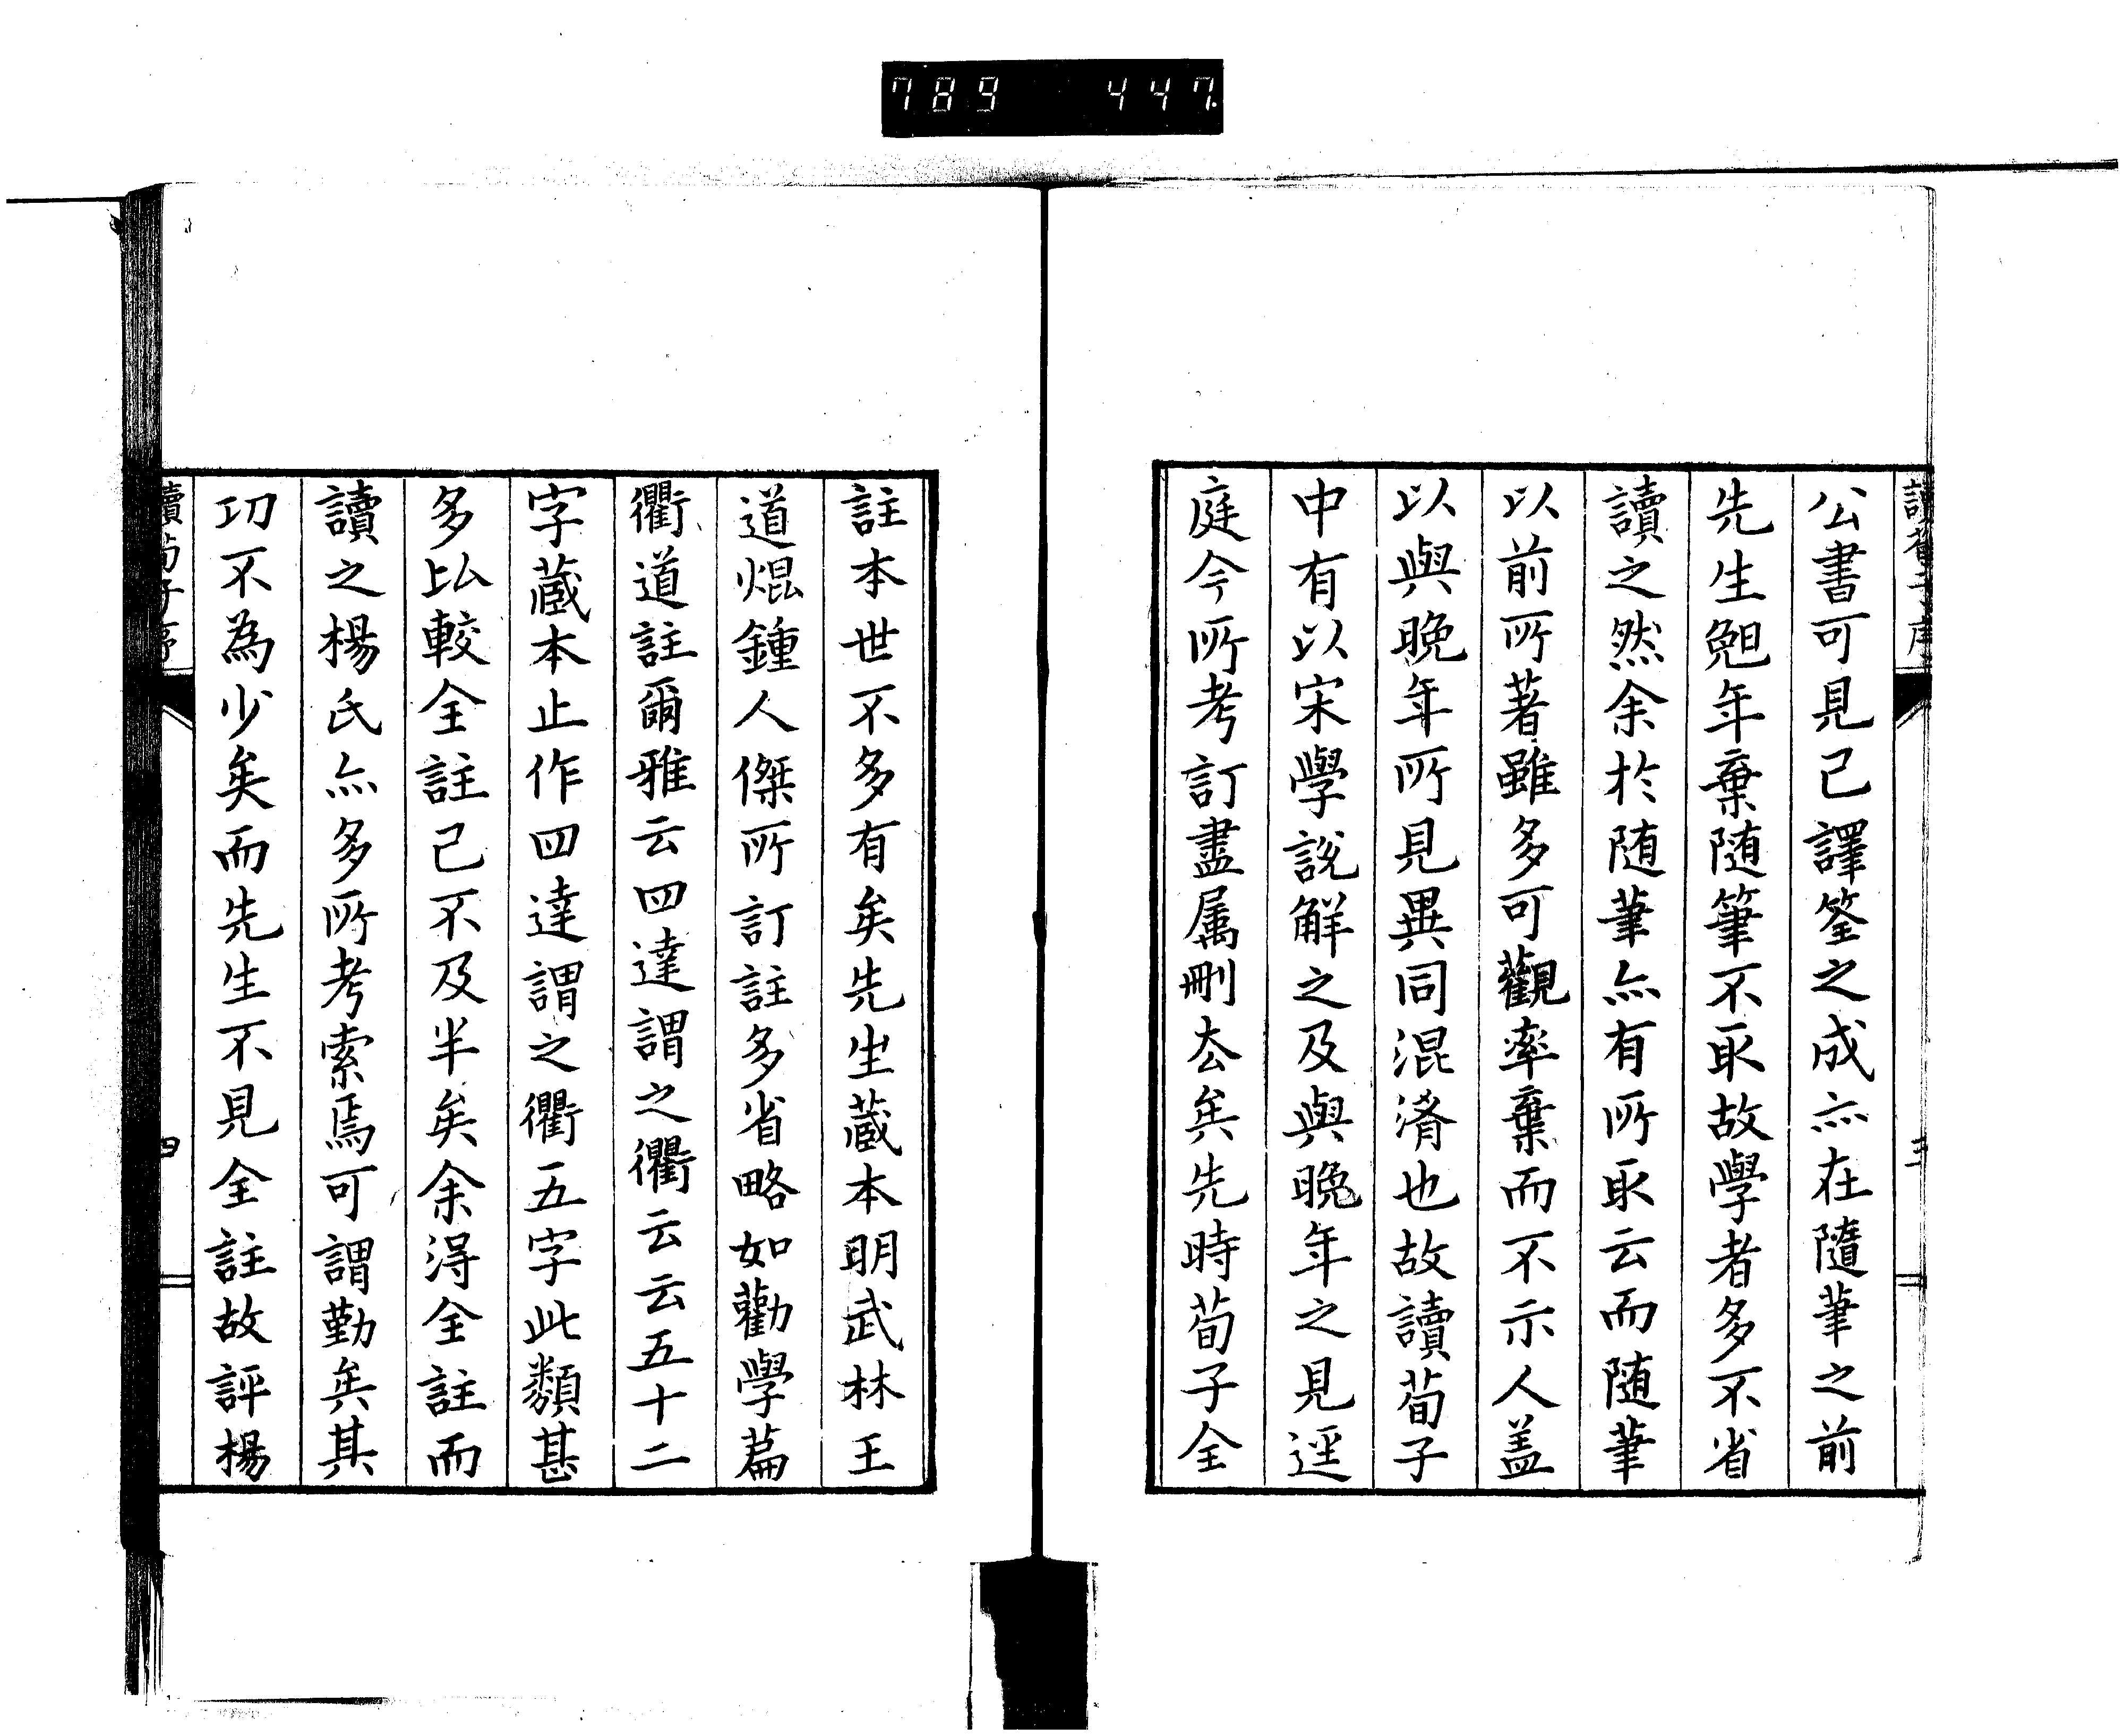 789 447
讀荀子序
三
公書可見已譯筌之成亦在隨筆之前
先生晩年棄随筆不取故學者多不省
讀之然余於随筆亦有所取云而随筆
以前所著雖多可觀率棄而不示人盖
以與晩年所見異同混淆也故讀荀子
中有以宋學說解之及與晩年之見逕
庭今所考訂盡属刪厺矣先時荀子全
註本世不多有矣先生蔵本明武林王
道焜鍾人傑所訂註多省略如勸學篇
衢道註爾雅云四達謂之衢云云五十二
字蔵本止作四達謂之衢五字此類甚
多比較全註已不及半矣余淂全註而
讀之楊氏亦多所考索焉可謂勤矣其
功不為少矣而先生不見全註故評楊
讀荀子序
四